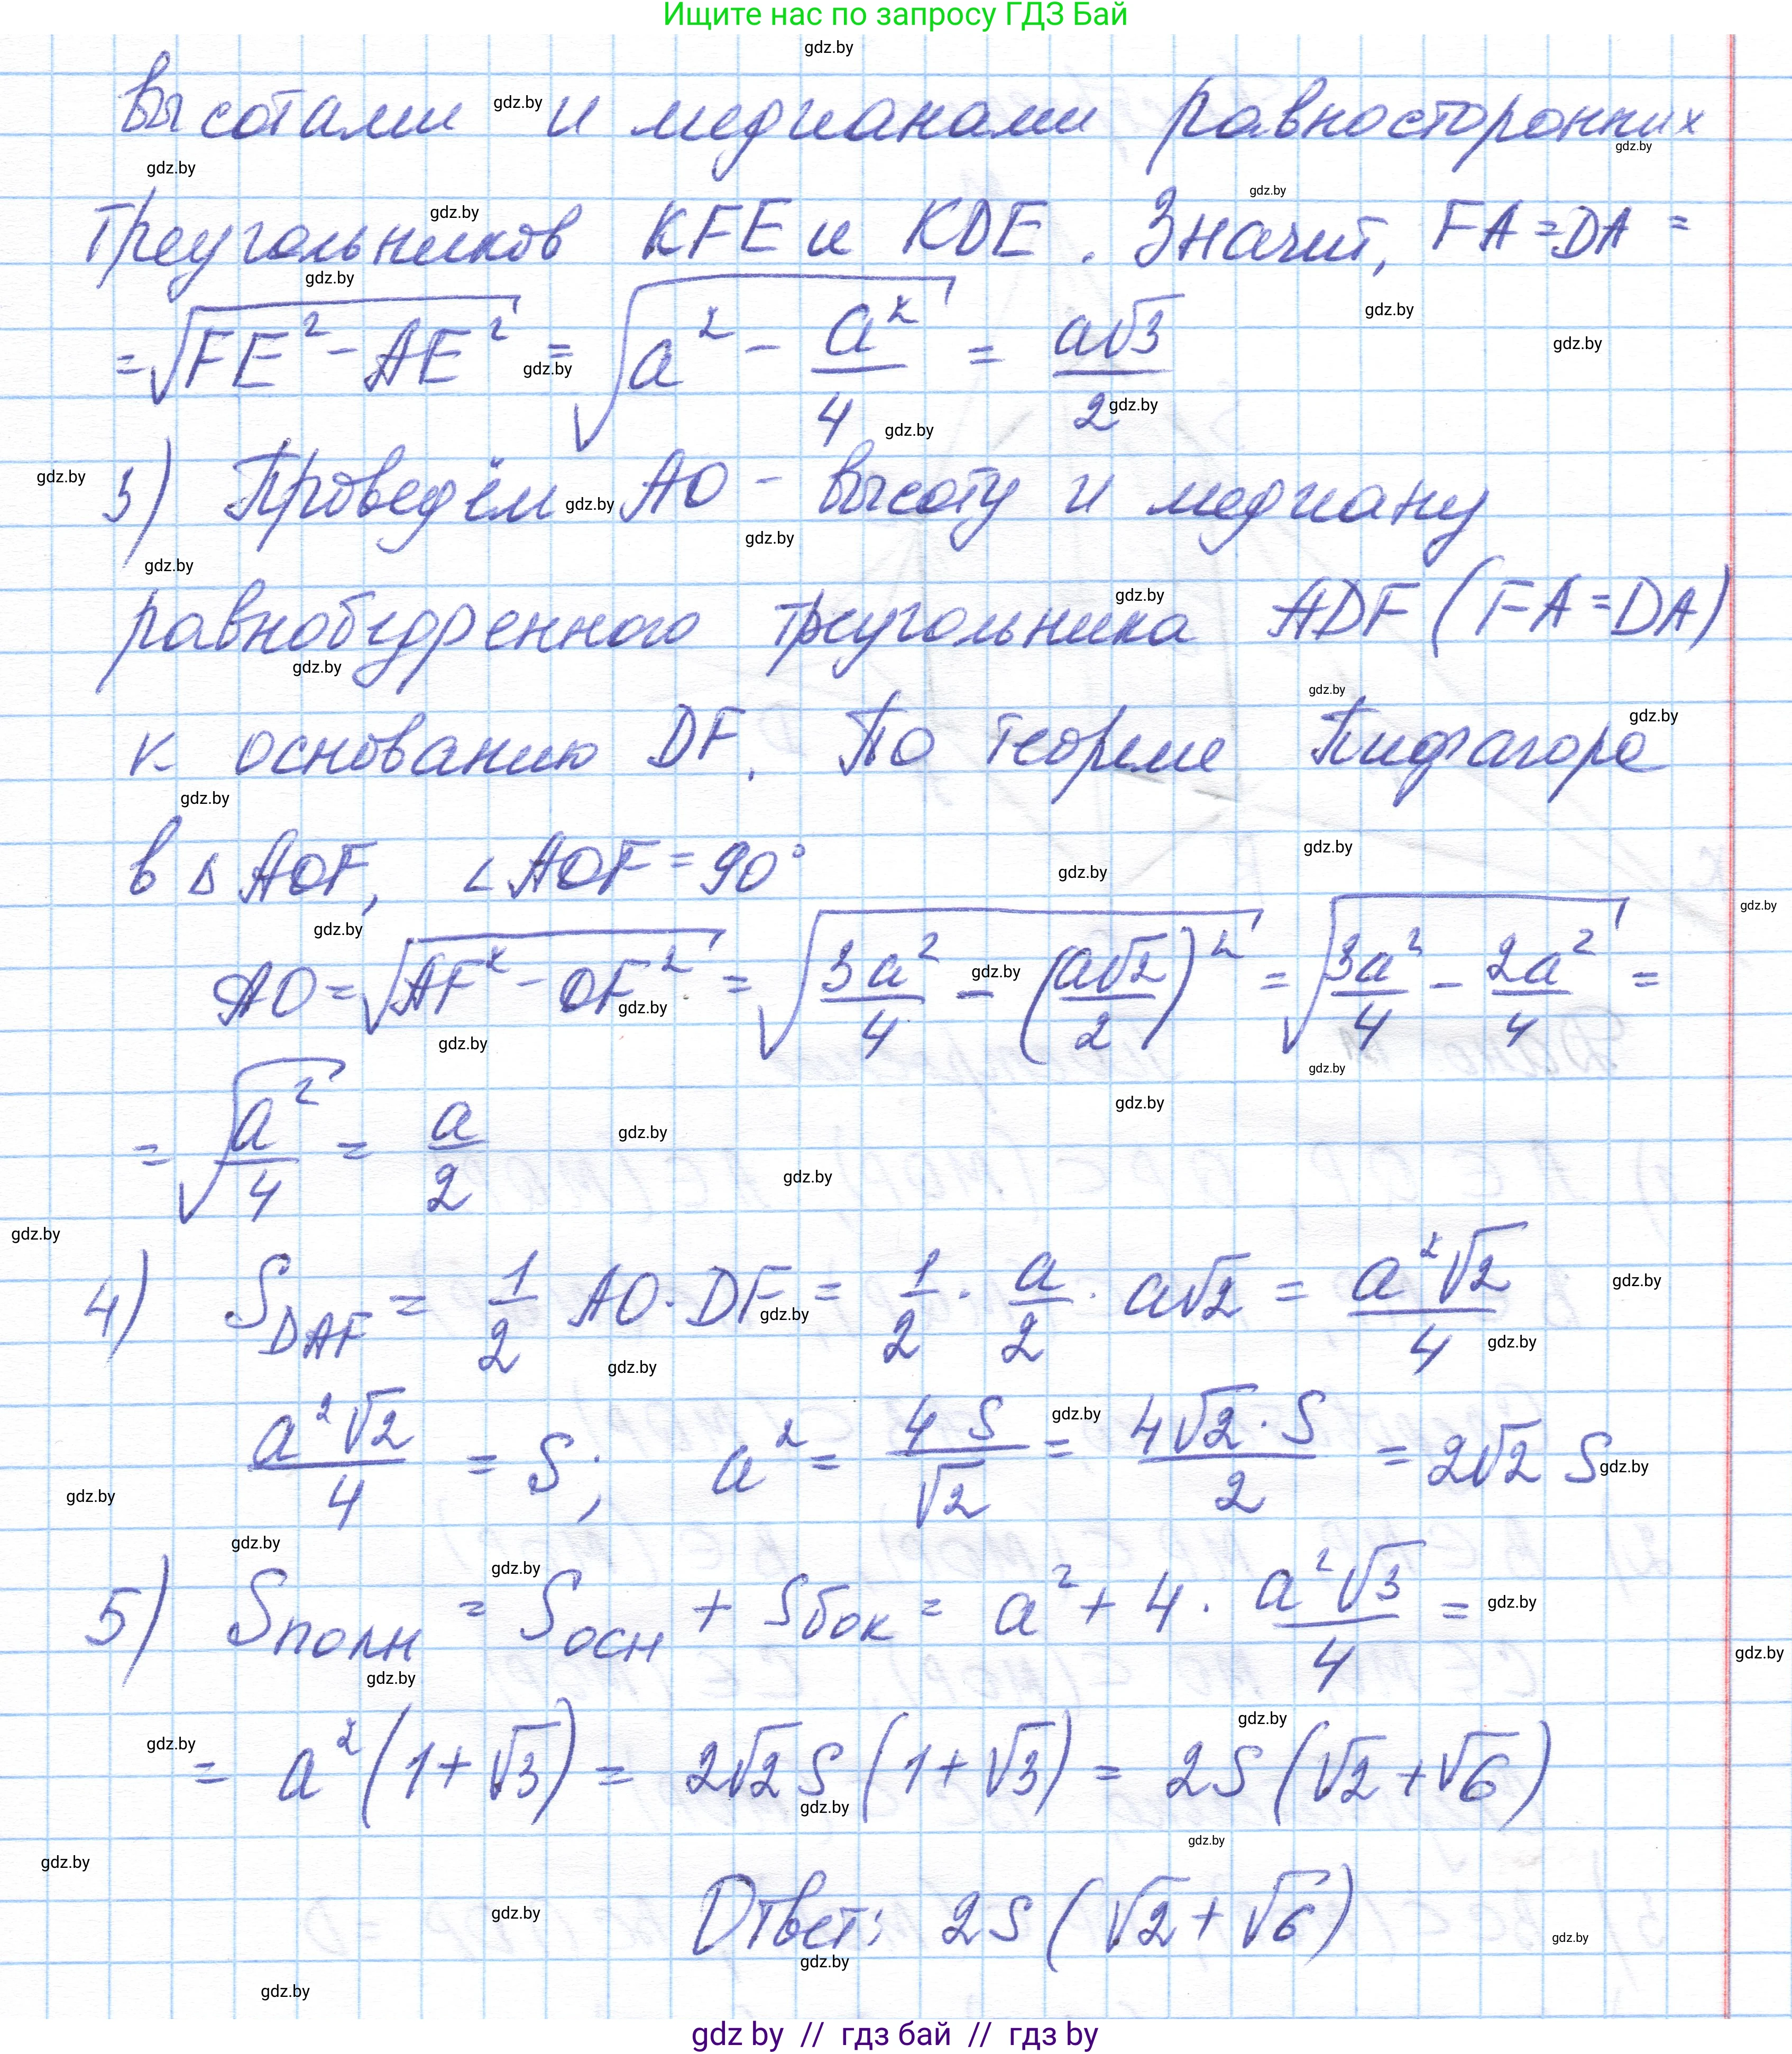 Ищите нас по запросу ГДЗ Бай
gdz.by
высотами и медианами равносторонних
треугольников KFE и KDE. Значит, FA = DA =
= √(FE² - AE²) = √(a² - a²/4) = a√3/2
3) Проведём AO - высоту и медиану
равнобедренного треугольника ADF (FA = DA)
к основанию DF. По теореме Пифагора
в △AOF, ∠AOF = 90°
AO = √(AF² - OF²) = √(3a²/4 - (a√2/2)²) = √(3a²/4 - 2a²/4) =
= √(a²/4) = a/2
4) S_DAF = 1/2 AO · DF = 1/2 · a/2 · a√2 = a²√2/4
a²√2/4 = S; a² = 4S/√2 = 4√2 · S/2 = 2√2 S
5) Sполн = Sосн + Sбок = a² + 4 · a²√3/4 =
= a²(1 + √3) = 2√2 S (1 + √3) = 2S (√2 + √6)
Ответ: 2S (√2 + √6)
gdz by // гдз бай // гдз by